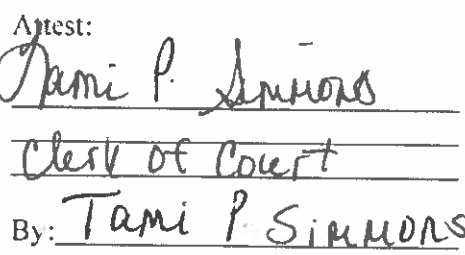 Attest:
Tami P. Simmons
Clerk of Court
By: Tami P. Simmons